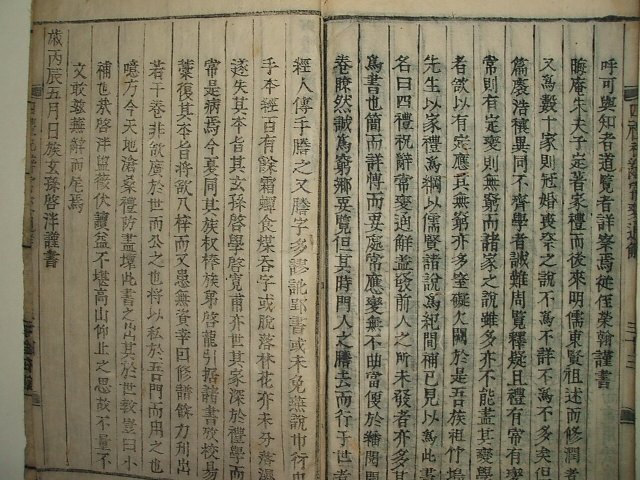 呼可與知者道覽者詳察焉從侄榮翰謹書
晦庵朱夫子定著家禮而後來明儒東賢祖述而修潤者
又爲數十家則冠婚喪祭之說不爲不詳不爲不多矣但
篇袠浩穰異同不齊學者誠難周覽釋疑且禮有常有變
常則有定變則無窮而諸家之說雖多亦不能盡其變學
者欲以有定應其無窮亦多窒礙欠闕於是吾族祖竹塢
先生以家禮爲綱以儒賢諸說爲紀間補已見以爲此書
名曰四禮祝辭常變通解蓋發前人之所未發者亦多其
爲書也簡而詳博而要處常應變無不曲當便於繙閱開
卷瞭然誠爲窮鄉要覽但其時門人之謄去而行于世者
經人傳手謄之又謄字多謬訛郢書或未免無說巾衍
手本經百有餘霜蟬食煤吞字或脫落林花亦未分落
遂失其本旨其玄孫啓學啓寬甫亦世其家深於禮學而
常是病焉今夏同其族叔權族弟啓龍引据諸書攷校易
藁復其本旨將欲入梓而又患無資幸回修譜餘力刋出
若干卷非欲廣於世而公之也將以私於吾門而用之也
噫方今天地滄桑禮防盡壞此書之出其於世敎豈曰小
補也哉啓泮留薇伏讀益不堪高山仰止之思故不量不
文敢慈蕪辭而尾焉
歲丙辰五月日族玄孫啓泮謹書